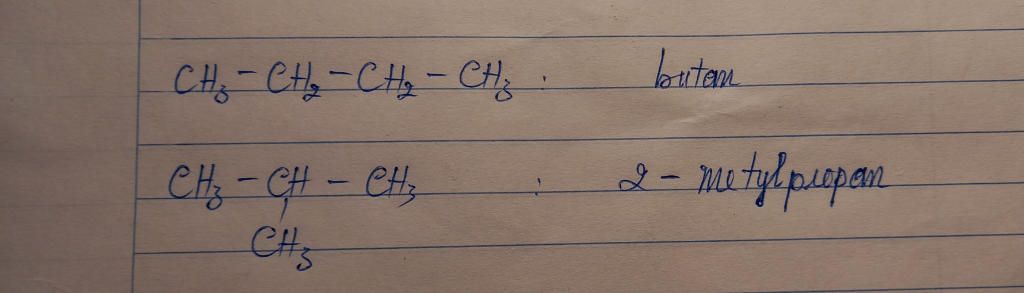 CH₃ – CH₂ – CH₂ – CH₃ : butan
CH₃ – CH – CH₃ : 2 – metylpropan
CH₃